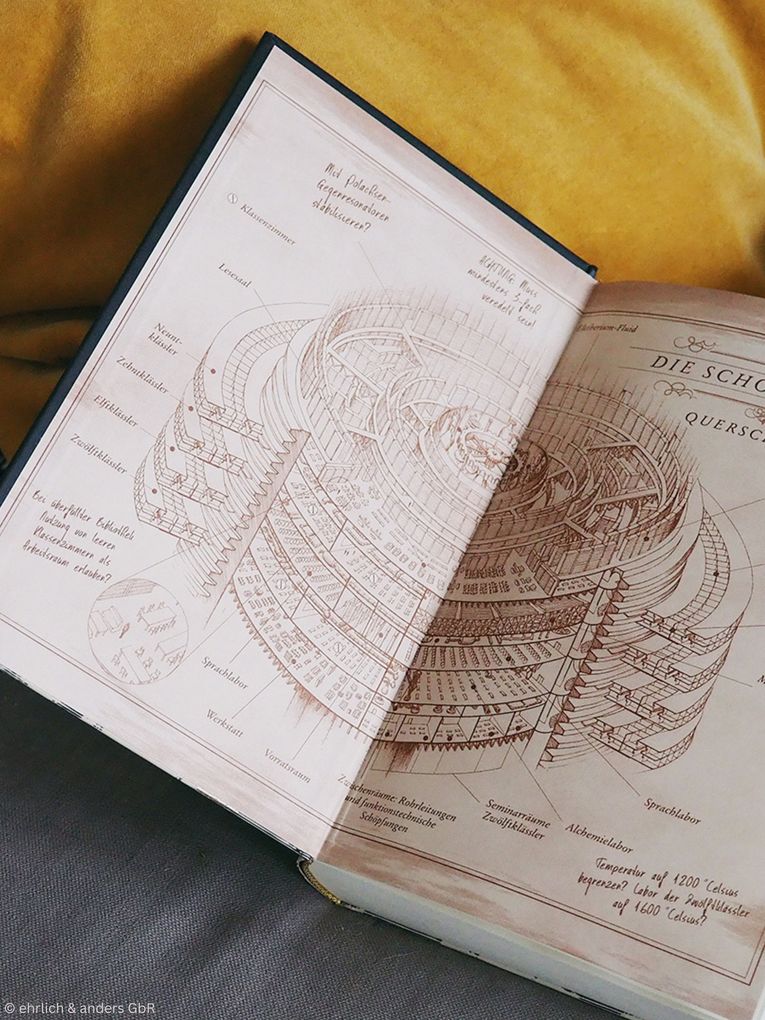 Mit Polachsen-
Gegenresonatoren
stabilisieren?
Klassenzimmer
ACHTUNG Muss
mindestens 5-fach
veredelt sein!
Lesesaal
Neunt-
klässler
Zehntklässler
Elftklässler
Zwölftklässler
Bei überfüllter Bibliothek
Nutzung von leeren
Klassenzimmern als
Arbeitsraum erlauben?
Sprachlabor
Werkstatt
Vorratsraum
-Fluid
DIE SCHO
QUERSCH
Zwischenräume: Rohrleitungen
und funktionstechnische
Schöpfungen
Seminarräume
Zwölftklässler
Alchemielabor
Sprachlabor
Temperatur auf 1200 °Celsius
begrenzen? Labor der Zwölftklässler
auf 1600 °Celsius?
© ehrlich & anders GbR